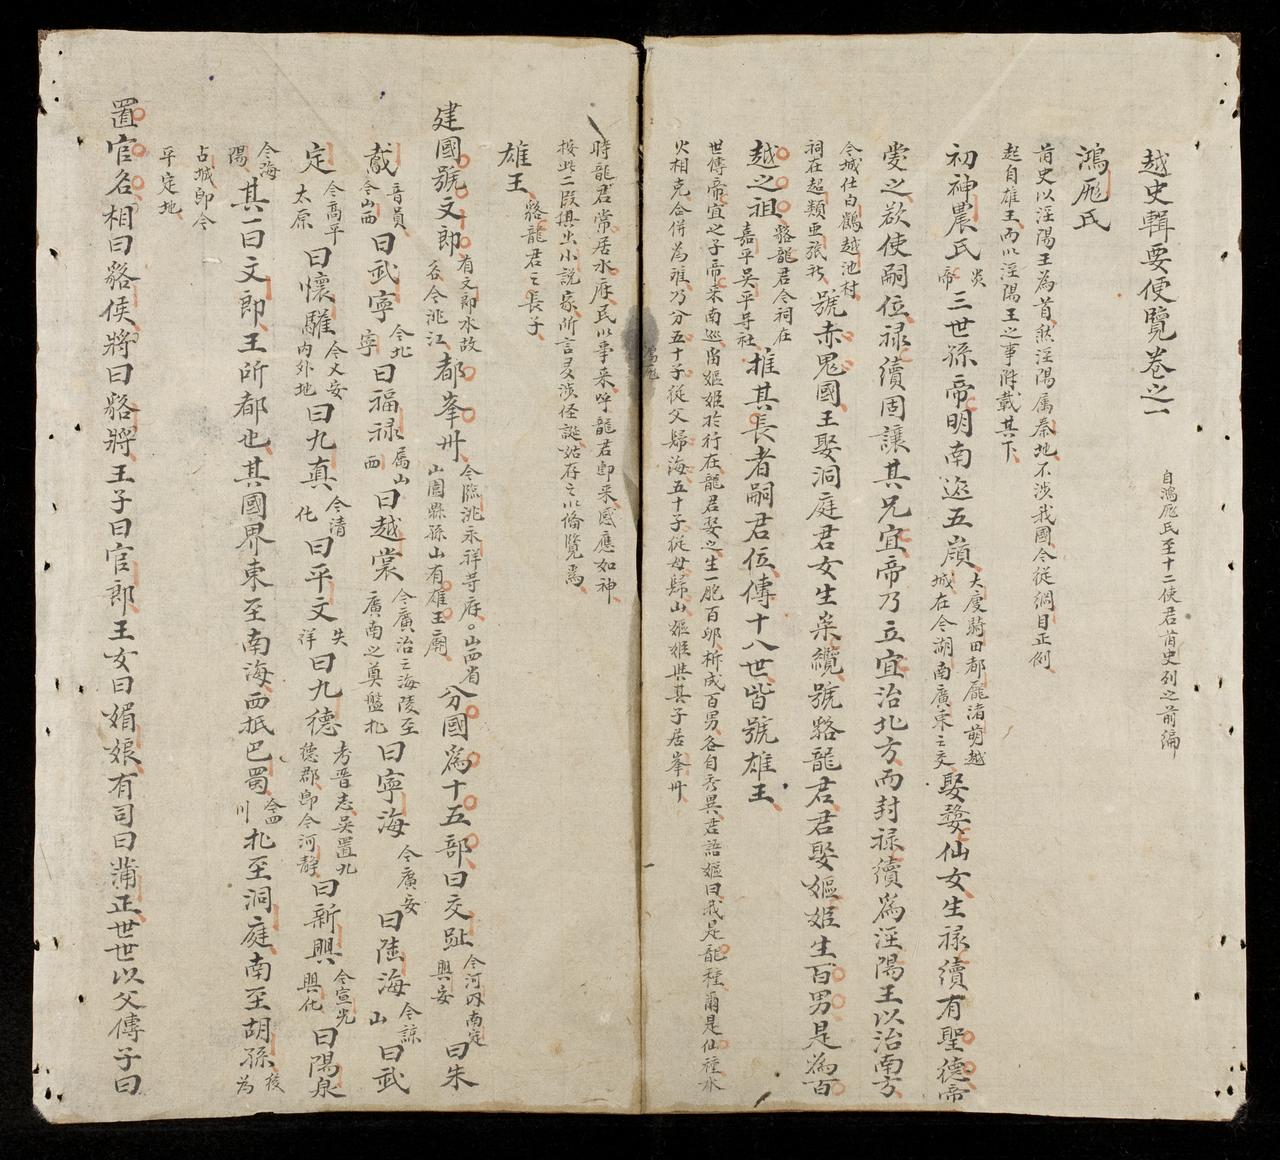 越史輯要便覽卷之一 自鴻厖氏至十二使君舊史列之前編
鴻厖氏
舊史以涇陽王爲首然涇陽属秦地不涉我國今從綱目正例
起自雄王而以涇陽王之事附載其下
初神農氏炎帝三世孫帝明南巡五嶺大庾騎田都龐渚萌越城在今湖南廣東之交娶婺仙女生祿續有聖德帝
愛之欲使嗣位祿續固讓其兄宜帝乃立宜治北方而封祿續爲涇陽王以治南方
今城仕白鶴越池村祠在超類亜旅社號赤鬼國王娶洞庭君女生崇纜號貉龍君君娶嫗姬生百男是為百
越之祖貉龍君今祠在嘉平吴平等社推其長者嗣君位傳十八世皆號雄王
世傳帝宜之子帝来南巡畱嫗姬於行在龍君娶之生一胞百卵柝成百男各自秀異君語嫗曰我是龍種爾是仙種水
火相克合併為难乃分五十子從父歸海五十子從母歸山嫗姬與其子居峯州
鴻厖
時龍君常居水府民以事来呼龍君即来感應如神
按此二段俱出小説家所言旻涉怪誕姑存之以俻覽焉
雄王貉龍君之長子
建國號文郎有文郎水故谷今洮江都峯州今臨洮永祥等府○山西省山圍縣孫山有雄王廟分國爲十五部曰交趾今河内南定興安曰朱
鳶音員今山西曰武寧今北寧曰福祿属山西曰越裳今廣治之海陵至廣南之奠盤北曰寧海今廣安曰陸海今諒山曰武
定今高平太原曰懷驩今乂安内外地曰九真今清化曰平文失祥曰九德考晋志吴置九德郡即今河静曰新興今宣光興化曰陽泉
今海陽其一曰文郎王所都也其國界東至南海西抵巴蜀今四川北至洞庭南至胡孫後為
占城即今
平定地
置官名相曰貉侯將曰貉將王子曰官郎王女曰媚娘有司曰蒲正世世以父傳子曰